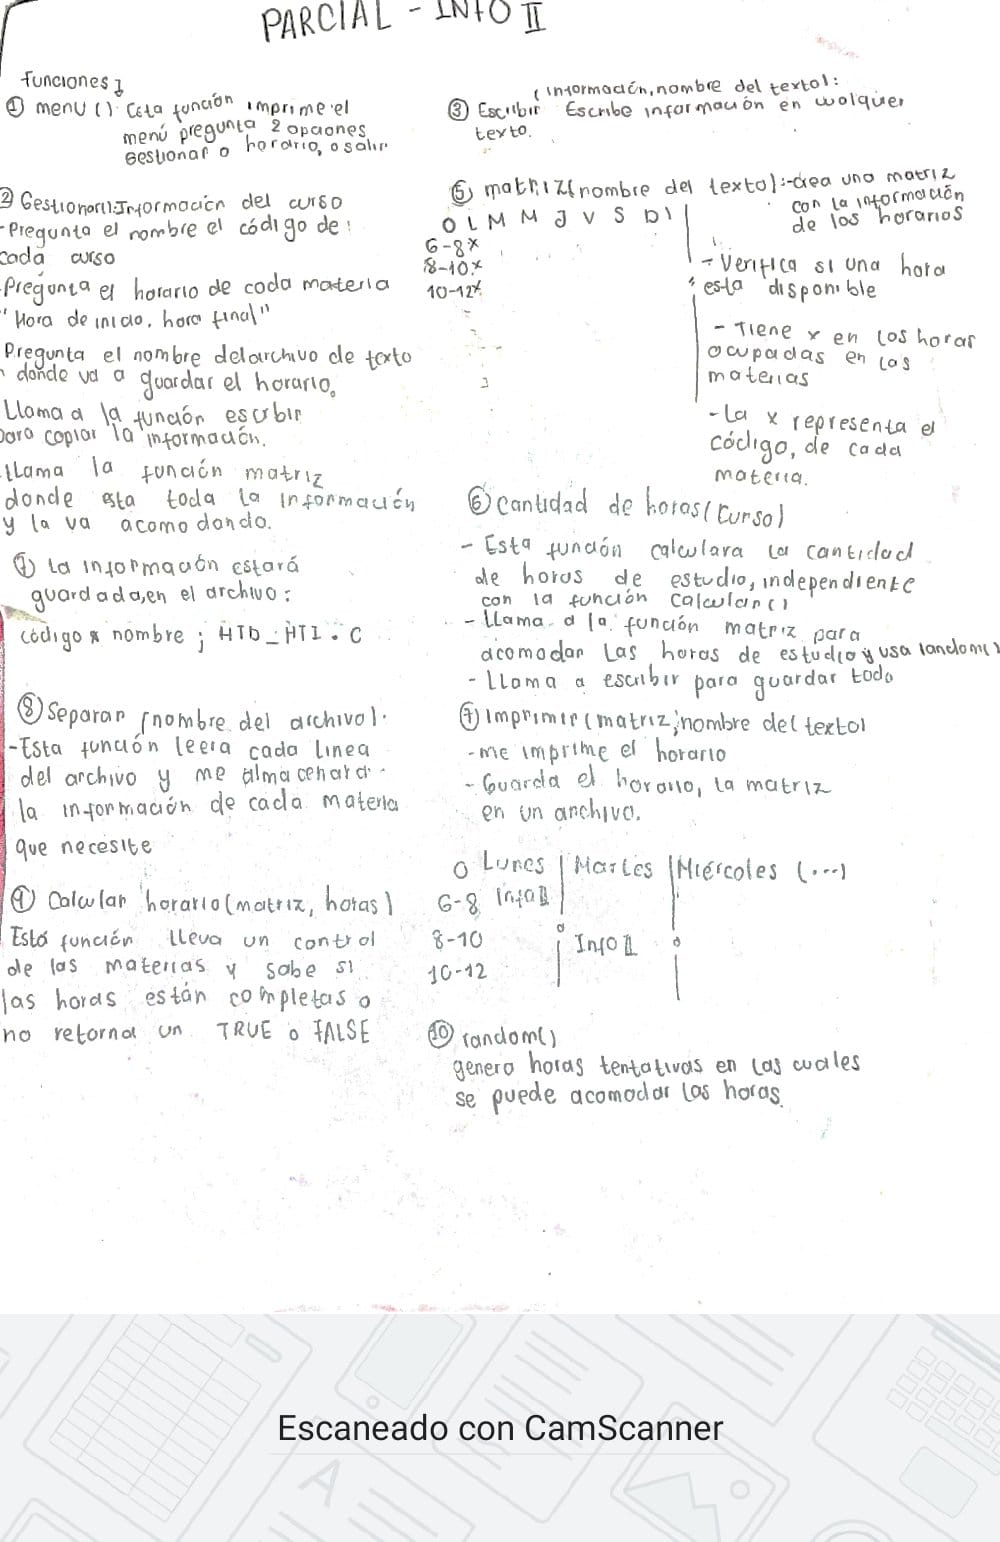 PARCIAL - INFO II
funciones]
① menu () Esta función imprime el
menú pregunta 2 opciones
gestionar o horario, o salir
② Gestionar() Información del curso
- Pregunta el nombre el código de:
cada curso
Pregunta el horario de cada materia
"Hora de inicio, hora final"
Pregunta el nombre del archivo de texto
donde va a guardar el horario.
Llama a la función escribir
para copiar la información.
llama la función matriz
donde esta toda la información
y la va acomodando.
④ La información estará
guardada, en el archivo:
código * nombre ; HTD_HTI . C
⑧ Separar (nombre del archivo).
- Esta función leera cada linea
del archivo y me almacenara
la información de cada materia
que necesite
⑨ Calcular horario (matriz, horas)
Esta función lleva un control
de las materias y sabe si
las horas están completas o
no retorna un TRUE o FALSE
(información, nombre del texto):
③ Escribir Escribe información en cualquier
texto.
⑤ matriz (nombre del texto):-crea una matriz
con la información
de los horarios
O L M M J V S D)
6-8x
8-10x
10-12x
- Verifica si una hora
esta disponible
- Tiene x en los horas
ocupadas en las
materias
- La x representa el
código, de cada
materia.
⑥ cantidad de horas (curso)
- Esta función calculara la cantidad
de horas de estudio, independiente
con la función calcular()
- Llama a la función matriz para
acomodar las horas de estudio y usa random()
- Llama a escribir para guardar todo
⑦ Imprimir (matriz, nombre del texto)
- me imprime el horario
- Guarda el horario, la matriz
en un archivo.
O Lunes | Martes | Miércoles (...)
6-8 Info II
8-10 Info II
10-12
⑩ random()
genera horas tentativas en las cuales
se puede acomodar las horas.
Escaneado con CamScanner